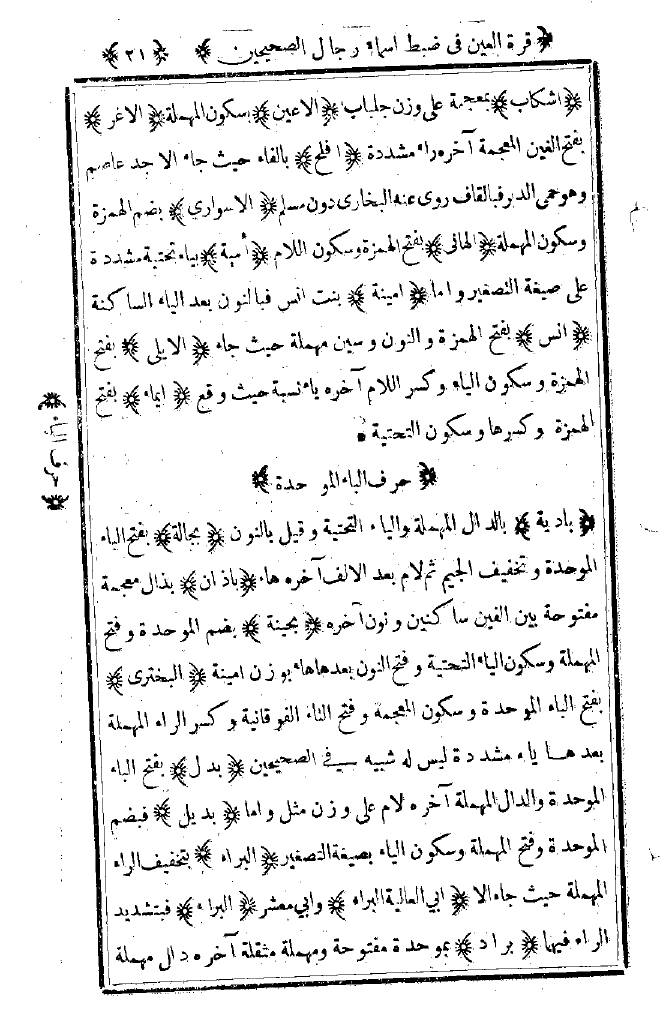 ﴿ قرة العين في ضبط اسماء رجال الصحيحين ﴾ ﴿ ٢١ ﴾
﴿ اشكاب ﴾ بمعجمة على وزن جلباب ﴿ الاعين ﴾ بسكون المهملة ﴿ الاغر ﴾
بفتح الغين المعجمة آخره راء مشددة ﴿ افلح ﴾ بالفاء حيث جاء الا جد عاصم
وهو حمى الدبر فبالقاف روى عنه البخارى دون مسلم ﴿ الاسواري ﴾ بضم الهمزة
وسكون المهملة ﴿ الهانى ﴾ بفتح الهمزة وسكون اللام ﴿ أمية ﴾ بياء تحتية مشددة
على صيغة التصغير و اما ﴿ امينة ﴾ بنت انس فبالنون بعد الياء الساكنة
﴿ انس ﴾ بفتح الهمزة و النون و سين مهملة حيث جاء ﴿ الايلى ﴾ بفتح
الهمزة و سكون الياء و كسر اللام آخره ياء نسبة حيث وقع ﴿ ايماء ﴾ بفتح
الهمزة و كسرها و سكون التحتية
﴿ حرف الباء الموحدة ﴾
﴿ حرف الباء ﴾
﴿ بادية ﴾ بالدال المهملة والياء التحتية و قيل بالنون ﴿ بجالة ﴾ بفتح الباء
الموحدة و تخفيف الجيم ثم لام بعد الالف آخره هاء ﴿ باذان ﴾ بذال معجمة
مفتوحة بين الفين ساكنين و نون آخره ﴿ بحينة ﴾ بضم الموحدة و فتح
المهملة وسكون الياء التحتية و فتح النون بعدها هاء بوزن امينة ﴿ البخترى ﴾
بفتح الباء الموحدة و سكون المعجمة و فتح التاء الفوقانية و كسر الراء المهملة
بعدها ياء مشددة ليس له شبيه في الصحيحين ﴿ بدل ﴾ بفتح الباء
الموحدة والدال المهملة آخره لام على وزن مثل و اما ﴿ بديل ﴾ فبضم
الموحدة و فتح المهملة وسكون الياء بصيغة التصغير ﴿ البراء ﴾ بتخفيف الراء
المهملة حيث جاء الا ﴿ ابي العالية البراء ﴾ وابي معشر ﴿ البراء ﴾ فبتشديد
الراء فيهما ﴿ براد ﴾ بموحدة مفتوحة ومهملة مثقلة آخره دال مهملة